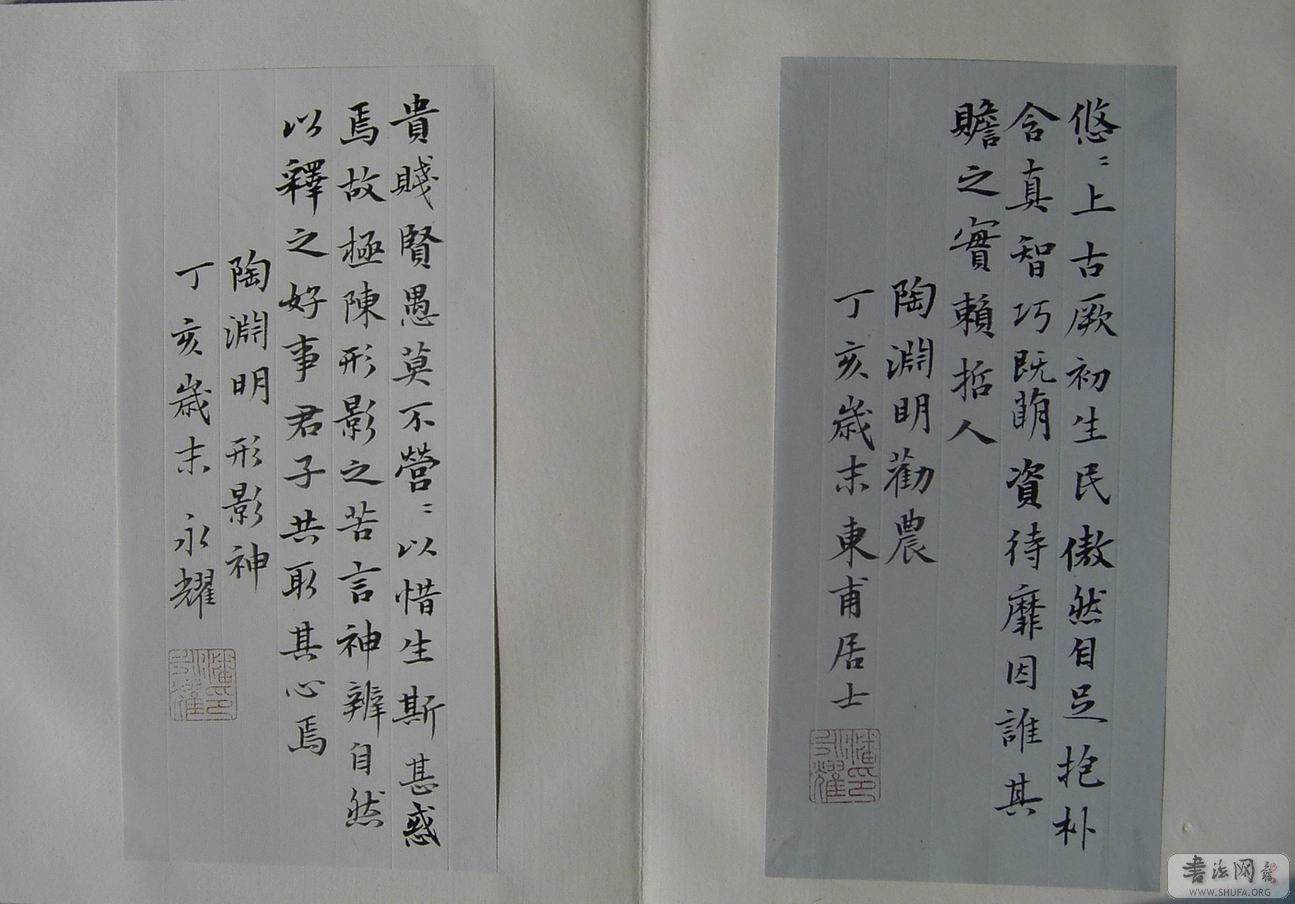 悠〻上古厥初生民傲然自足抱朴
含真智巧既萌資待靡因誰其
贍之實賴哲人
陶淵明勸農
丁亥歲末東甫居士
潘永耀印
貴賤賢愚莫不營〻以惜生斯甚惑
焉故極陳形影之苦言神辨自然
以釋之好事君子共取其心焉
陶淵明 形影神
丁亥歲末 永耀
潘永耀印
書法网
WWW.SHUFA.ORG